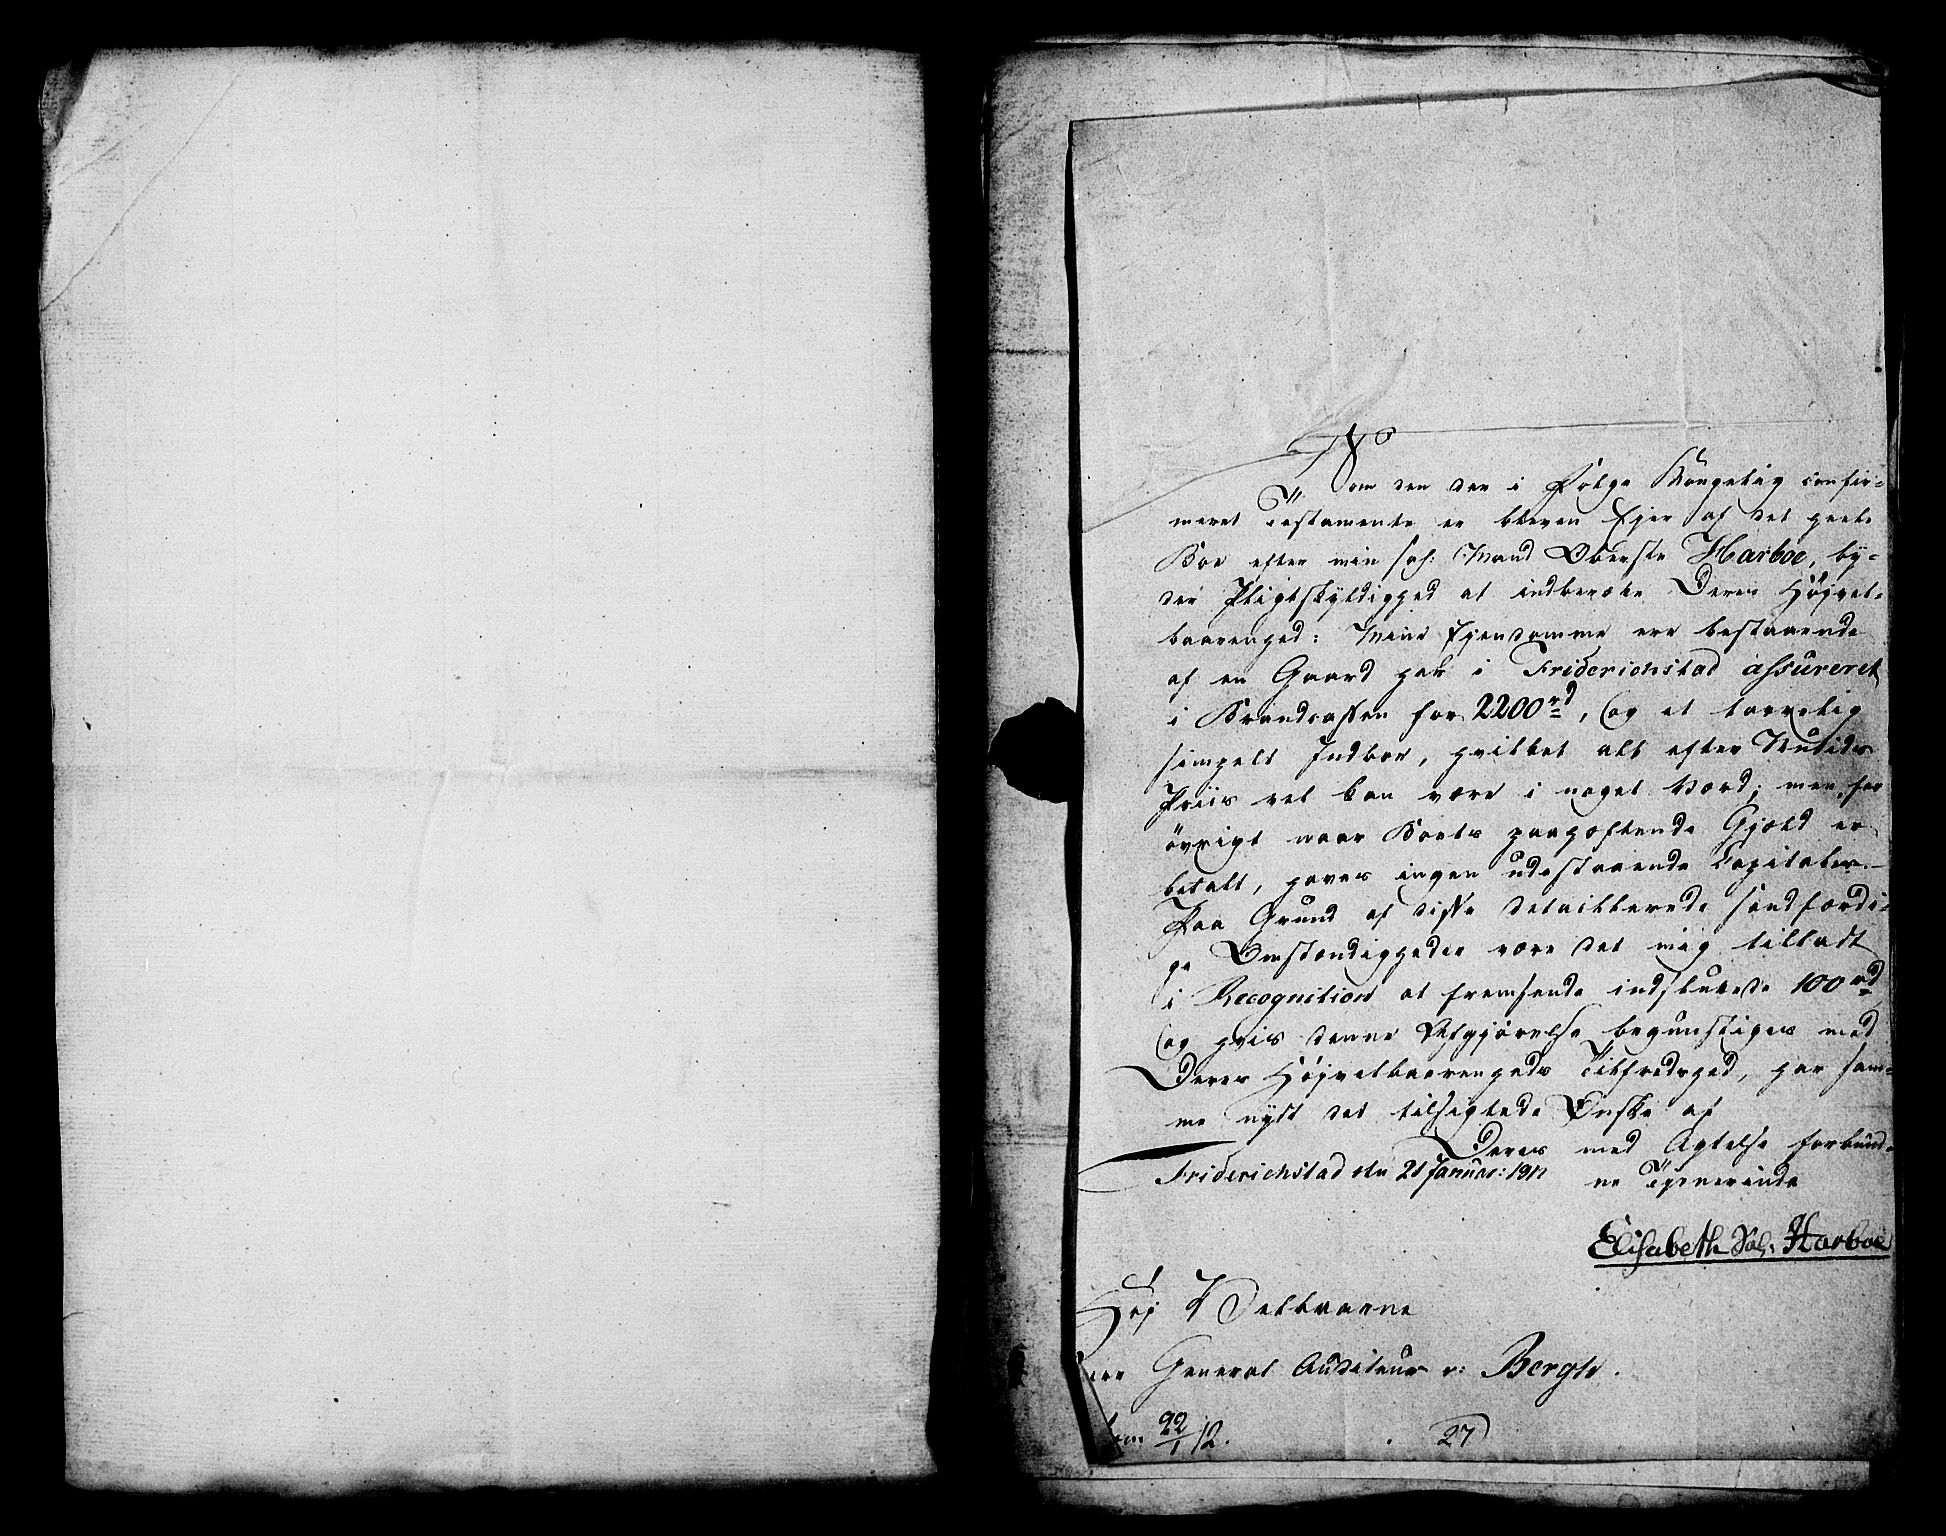 No
Som den der i Følge Kongelig confir=
meret Testamente er bleven Ejer af det heele
Boe efter min sal: Mand Oberste Harboe, by=
der Pligtskyldighed at indberætte Deres Højvel=
baarenhed: Mine Ejendomme ere bestaaende
af en Gaard her i Friderichstad assureret
i Brandcassen for 2200 rd, og et tarvelig
simpelt Indboe, hvilket alt efter Nutids
Priis vel kan være i noget Værd; men for
øvrigt naar Boets paahæftende Gjæld er
betalt, haves ingen udestaaende Capitaler.
Paa Grund af disse detaillerede sandfærdi=
ge Omstændigheder være det mig tilladt
i Recognition at fremsende indsluttede 100 rd
og hvis denne Afgjørelse begunstiges med
Deres Højvelbaarenheds Tilfredshed, har sam=
me nydt det tilsigtede Ønske af
Deres med Agtelse forbund=
Friderichstad den 21 Januar: 1812
ne Tjenerinde
Elisabeth Sal: Harboe
Høj Velbaarne
Herr General Auditeur v: Bergh.
22/1 12.
27